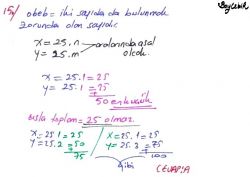 15)
obeb = iki sayıda da bulunmak
zorunda olan sayıdır.
x = 25.n
y = 25.m
aralarında asal
olcak.
x = 25.1 = 25
y = 25.1 = 25
50 en küçük
toplam = 25 olmaz.
x = 25.1 = 25
y = 25.2 = 50
75
x = 25.1 = 25
y = 25.3 = 75
100
gibi
CEVAP:A